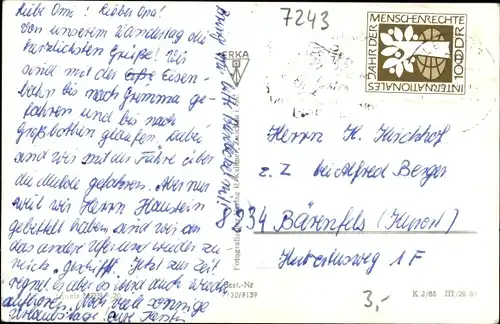 Liebe Oma! Lieber Opa!
Von unserem Wandertag die
herzlichsten Grüße! Wir
sind mit der Eisen-
bahn bis nach Grimma ge-
fahren und bis nach
Großbothen gelaufen. Dabei
sind wir mit der Fähre über
die Mulde gefahren. Aber nur
weil wir Herrn Haustein
gebettelt haben sind wir an
das andere Ufer und wieder zu-
rück "geschifft". Jetzt zur Zeit
regnet es aber es wird auch wieder
aufhören. Noch viele sonnige
Urlaubstage. Eure Kerstin
7243
ERKA
INTERNATIONALES
JAHR DER
MENSCHENRECHTE
10 DDR
Herrn K. Kirchhof
z. Z bei Alfred Berger
8234 Bärenfels (Kurort)
Kurhausweg 1F
Best.-Nr
3,-
K 2/65 III/29/65